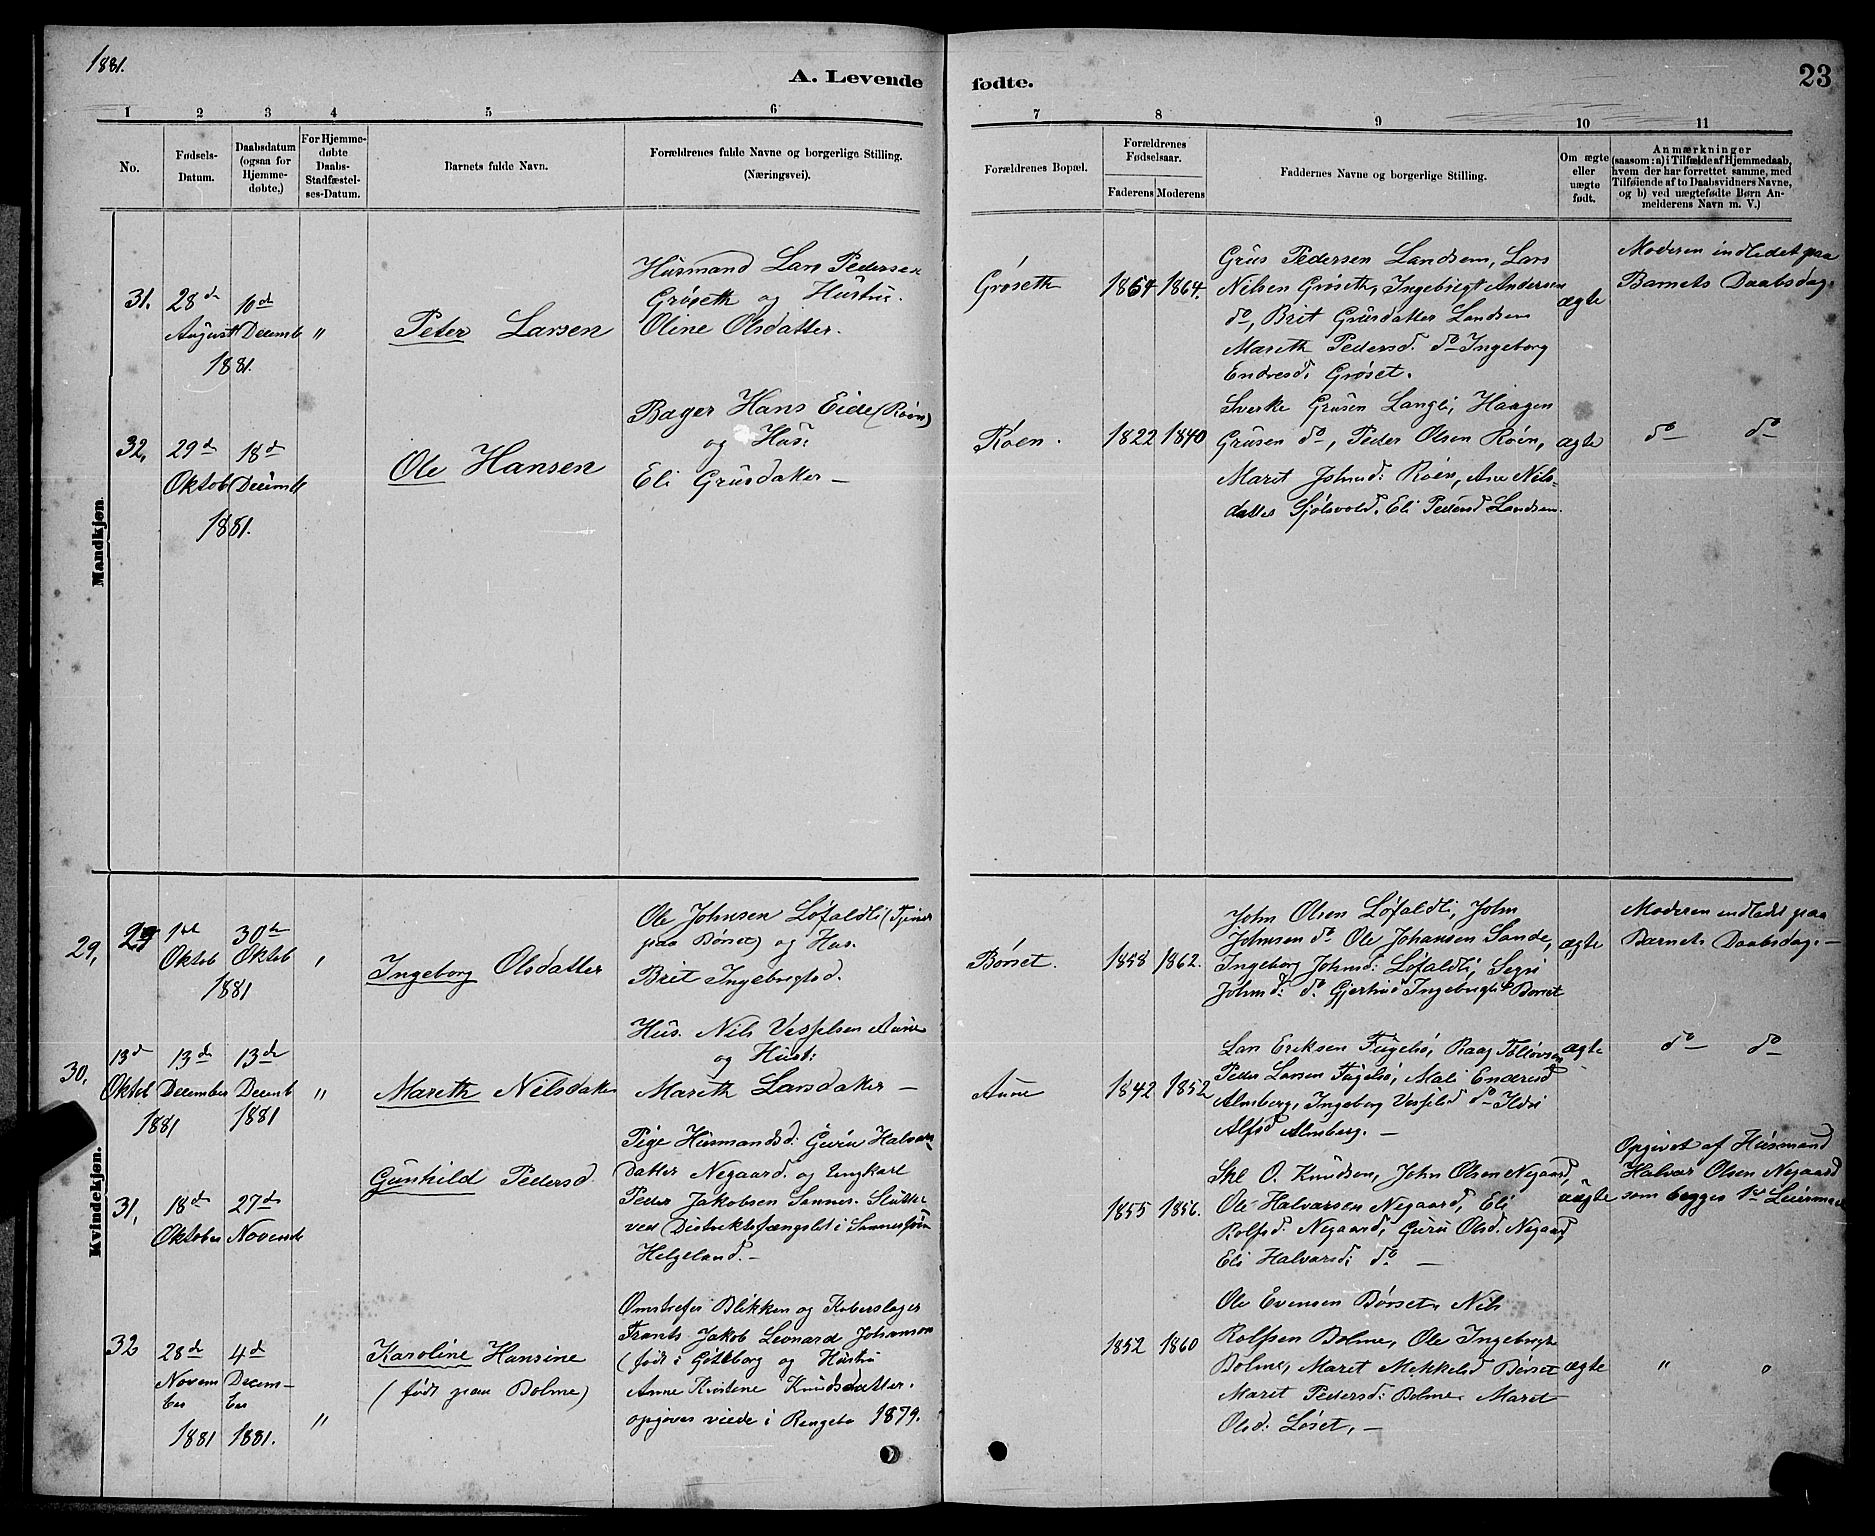 1881.
A. Levende
fødte.
23
1
2
3
4
5
6
7
8
9
10
11
No.
Fødsels-
Datum.
Daabsdatum
(ogsaa for
Hjemme-
døbte.)
For Hjemme-
døbte
Daabs-
Stadfæstel-
ses-Datum.
Barnets fulde Navn.
Forældrenes fulde Navne og borgerlige Stilling.
(Næringsvei).
Forældrenes Bopæl.
Forældrenes
Fødselsaar.
Faderens
Moderens
Faddernes Navne og borgerlige Stilling.
Om ægte
eller
uægte
født.
Anmærkninger
(saasom: a) i Tilfælde af Hjemmedaab,
hvem der har forrettet samme, med
Tilføiende af to Daabsvidners Navne,
og b) ved uægtefødte Børn An-
melderens Navn m. V.)
Mandkjøn
31.
28de
August
10de
Decemb
1881.
"
Peter Larsen
Husmand Lars Pedersen
Grøseth og Hustru
Oline Olsdatter.
Grøseth
1854
1864.
Grus Pedersen Landsem, Lars
Nilsen Grøseth, Ingebrigt Andersen
do, Brit Grusdatter Landsem
Mareth Pedersd. do Ingeborg
Endresd. Grøset.
ægte
Moderen indledet paa
Barnets Daabsdag.
32.
29de
Oktob
18de
Decemb
1881.
Ole Hansen
Bager Hans Eide (Røen)
og Hus:
Eli Grusdatter —
Røen.
1822
1840
Sverke Grusen Langli, Haagen
Grusen do, Peder Olsen Røen,
Marit Johnsd: Røen, Ane Nils-
datter Sjølsvold, Eli Pedersd Landsem.
ægte
do — do
Kvindekjøn.
29,
29
1ste
Oktob
30te
Oktob
1881
"
Ingeborg Olsdatter
Ole Johnsen Løfaldli (Tjener
paa Børset) og Hus.
Brit Ingebrigtsd.
Børset.
1858
1862.
John Olsen Løfaldli, John
Johnsen do Ole Johansen Sande,
Ingeborg Johnsd: Løfaldli, Segri
Johnsd: do Gjertrud Ingebrigtsd Børset
ægte
Moderen indledt paa
Barnets Daabsdag. —
30,
13de
Oktob
13de
December
1881
13de
Decemb
1881
"
Mareth Nilsdatter
Hus. Nils Vessesen Aune
og Hust:
Mareth Larsdatter —
Aune
1842
1852
Lars Eriksen Fugelsø,
Peder Larsen Fugelsø, Mali Endresd
Almberg, Ingeborg do Ildri
Alfsd Almberg. —
ægte
do — do
31,
18de
Oktober
27de
Novemb
Gunhild Pedersd
Pige Husmandsd: Guru Halvors-
datter Negaard og Ungkarl
Peder Jakobsen Sannes. Slutter
ved Distriktsfængslet i
Helgeland. —
1855
1856.
O. Knudsen, John Olsen Negaard,
Ole Halvorsen Negaard, Eli
Rolfsd. Negaard, Guru Olsd. Negaard
Eli Halvorsd: do —
uægte
Opgivet af Husmand
Halvor Olsen Negaard
som begges 1ste Leiermaal
32
28de
Novem
ber
1881
4de
Decem-
ber
1881.
"
Karoline Hansine
(født paa Bolme)
Omstreifer Blikken og Koberslager
Frants Jakob Leonard Johanson
(født i Göteborg og Hustru
Anne Kristine Knudsdatter.
opgives viede i Rengebo 1879.
1852
1860
Ole Evensen Børset, Nils
Rolfsen Bolme, Ole Ingebrigts
Bolme, Maret Mekkelsd Børset
Maret Pedersd: Bolme Maret
Olsd: Løset, —
ægte
" "